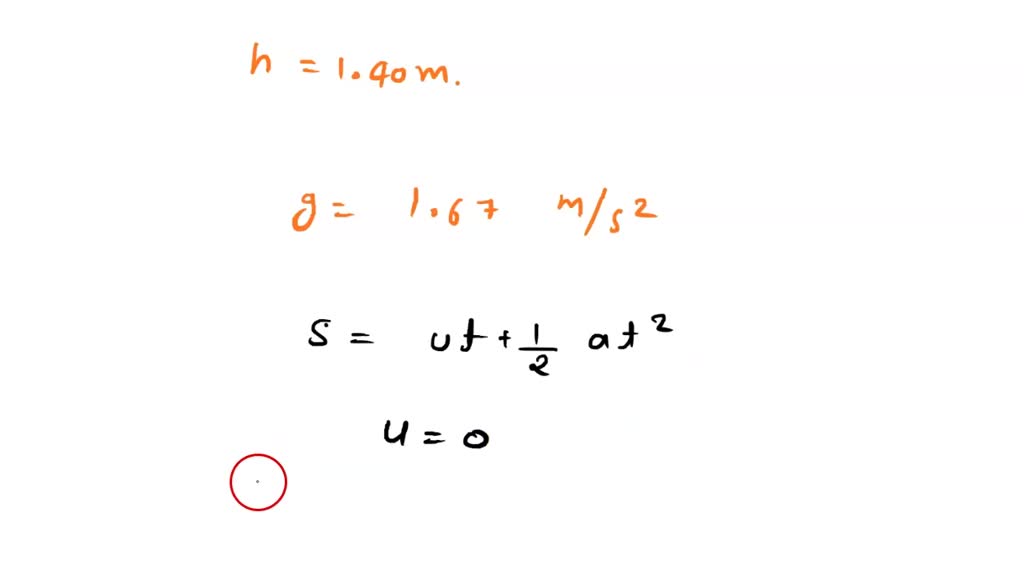 h = 1.40 m.
g = 1.67 m/s2
S = ut + 1/2 at2
u = 0